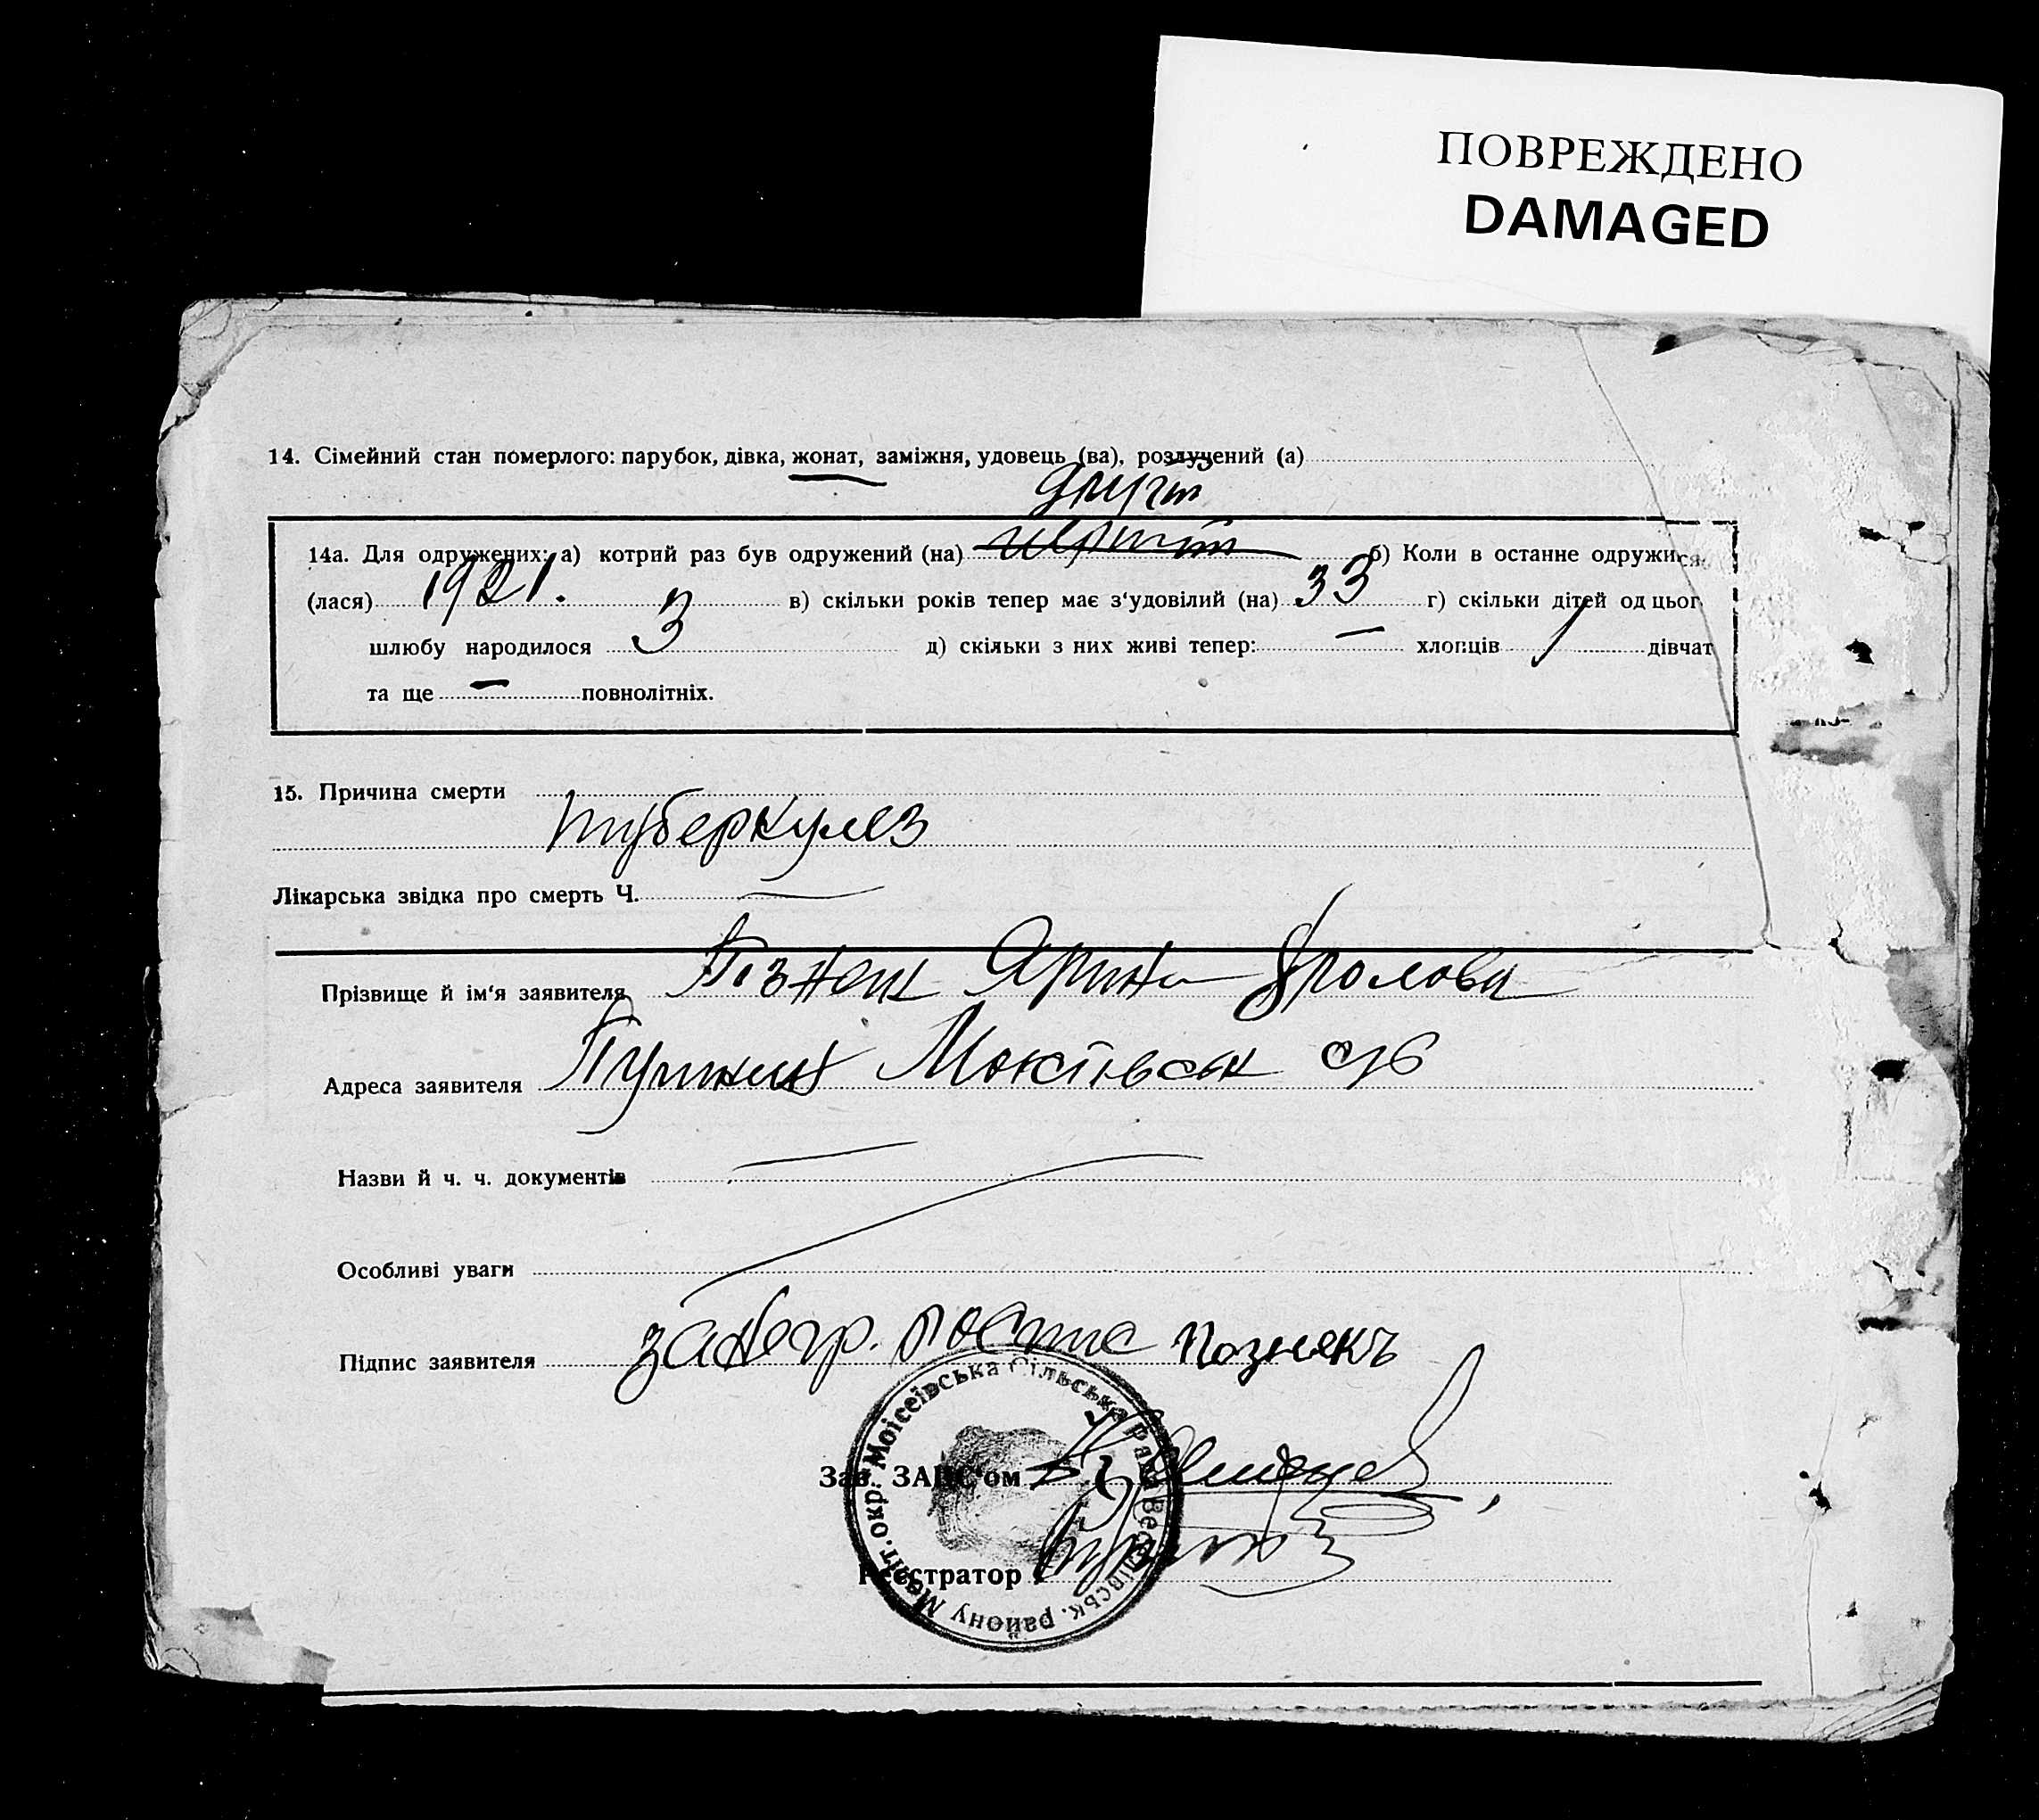 ПОВРЕЖДЕНО
DAMAGED
14. Сімейний стан померлого: парубок, дівка, жонат, заміжня, удовець (ва), розлучений (а)
другий
14а. Для одружених: а) котрий раз був одружений (на) перший б) Коли в останне одружився
(лася) 1921. в) скільки років тепер має з'удовілий (на) 33 г) скільки дітей од цього
шлюбу народилося 3 д) скільки з них живі тепер: — хлопців 1 дівчат
та ще — повнолітніх.
15. Причина смерти
туберкулез
Лікарська звідка про смерть Ч. —
Прізвище й ім'я заявителя Ярина Фролова
Адреса заявителя
Назви й ч. ч. документів —
Особливі уваги
Підпис заявителя за негр. Познякъ
Моісеївська Сільська Рада Веселівськ. району Меліт. окр.
Зав. ЗАГС'ом
Реєстратор